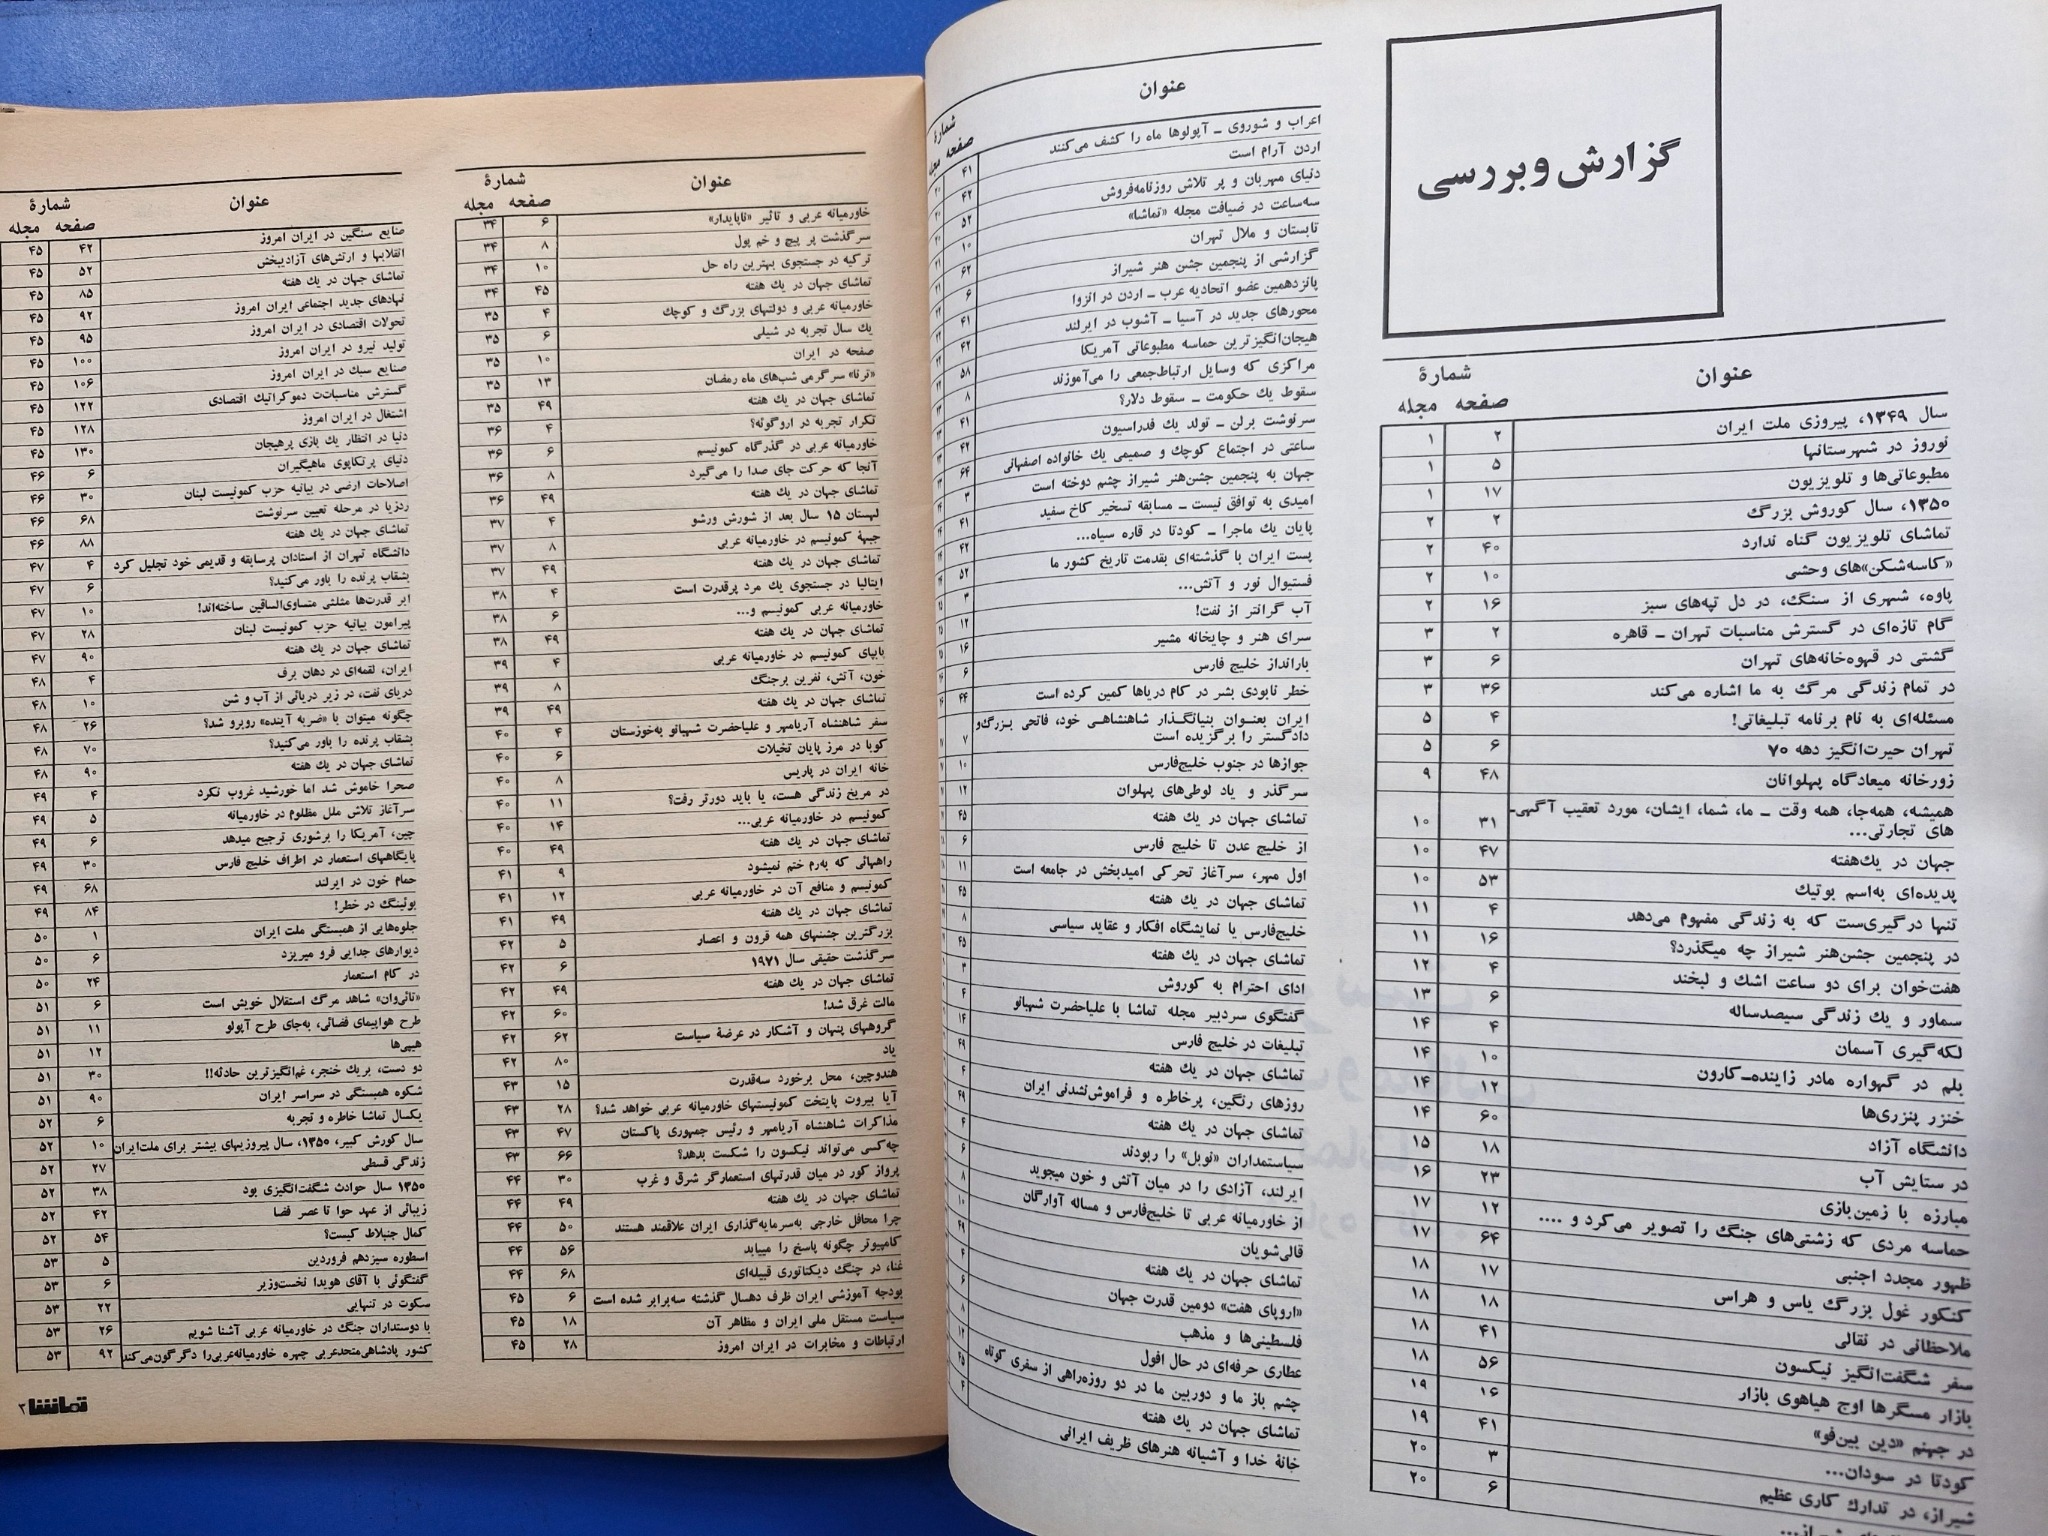 گزارش و بررسی
عنوان
شمارهٔ
صفحه مجله
سال ۱۳۴۹، پیروزی ملت ایران ۲ ۱
نوروز در شهرستانها ۵ ۱
مطبوعاتی‌ها و تلویزیون ۱۷ ۱
۱۳۵۰، سال کوروش بزرگ ۲ ۲
تماشای تلویزیون گناه ندارد ۴۰ ۲
«کاسه‌شکن»های وحشی ۱۰ ۲
پاوه، شهری از سنگ، در دل تپه‌های سبز ۱۶ ۲
گام تازه‌ای در گسترش مناسبات تهران ـ قاهره ۲ ۳
گشتی در قهوه‌خانه‌های تهران ۶ ۳
در تمام زندگی مرگ به ما اشاره می‌کند ۳۶ ۳
مسئله‌ای به نام برنامه تبلیغاتی! ۴ ۵
تهران حیرت‌انگیز دهه ۷۰ ۶ ۵
زورخانه میعادگاه پهلوانان ۴۸ ۹
همیشه، همه‌جا، همه وقت ـ ما، شما، ایشان، مورد تعقیب آگهی‌ـ
های تجارتی... ۳۱ ۱۰
جهان در یك‌هفته ۴۷ ۱۰
پدیده‌ای به‌اسم بوتیك ۵۳ ۱۰
تنها درگیری‌ست که به زندگی مفهوم می‌دهد ۴ ۱۱
در پنجمین جشن‌هنر شیراز چه میگذرد؟ ۱۶ ۱۱
هفت‌خوان برای دو ساعت اشك و لبخند ۴ ۱۲
سماور و یك زندگی سیصدساله ۶ ۱۳
لکه‌گیری آسمان ۴ ۱۴
بلم در گهواره مادر زاینده‌ـ‌کارون ۱۰ ۱۴
خنزر پنزری‌ها ۱۲ ۱۴
دانشگاه آزاد ۶۰ ۱۴
در ستایش آب ۱۸ ۱۵
مبارزه با زمین‌بازی ۲۳ ۱۶
حماسه مردی که زشتی‌های جنگ را تصویر می‌کرد و .... ۱۲ ۱۷
ظهور مجدد اجنبی ۶۴ ۱۷
کنکور غول بزرگ یاس و هراس ۱۷ ۱۸
ملاحظاتی در نقالی ۱۸ ۱۸
سفر شگفت‌انگیز نیکسون ۴۱ ۱۸
بازار مسگرها اوج هیاهوی بازار ۵۶ ۱۸
در جهنم «دین بین‌فو» ۱۶ ۱۹
کودتا در سودان... ۴۱ ۱۹
شیراز، در تدارك کاری عظیم ۳ ۲۰
۶ ۲۰
عنوان
شمارهٔ
صفحه
اعراب و شوروی ـ آپولوها ماه را کشف می‌کنند ۴۱
اردن آرام است ۴۲
دنیای مهربان و پر تلاش روزنامه‌فروش ۵۲
سه‌ساعت در ضیافت مجله «تماشا» ۱۰
تابستان و ملال تهران ۶۲
گزارشی از پنجمین جشن هنر شیراز ۶
پانزدهمین عضو اتحادیه عرب ـ اردن در انزوا ۴۱
محورهای جدید در آسیا ـ آشوب در ایرلند ۴۲
هیجان‌انگیزترین حماسه مطبوعاتی آمریکا ۵۸
مراکزی که وسایل ارتباط‌جمعی را می‌آموزند ۸
سقوط یك حکومت ـ سقوط دلار؟ ۴۱
سرنوشت برلن ـ تولد یك فدراسیون ۴۲
ساعتی در اجتماع کوچك و صمیمی یك خانواده اصفهانی ۶۴
جهان به پنجمین جشن‌هنر شیراز چشم دوخته است ۳
امیدی به توافق نیست ـ مسابقه تسخیر کاخ سفید ۴۱
پایان یك ماجرا ـ کودتا در قاره سیاه... ۴۲
پست ایران با گذشته‌ای بقدمت تاریخ کشور ما ۵۲
فستیوال نور و آتش... ۳
آب گرانتر از نفت! ۱۲
سرای هنر و چاپخانه مشیر ۱۶
بارانداز خلیج فارس ۶
خطر نابودی بشر در کام دریاها کمین کرده است ۴۴
ایران بعنوان بنیانگذار شاهنشاهی خود، فاتحی بزرگ‌و
دادگستر را برگزیده است ۷
جوازها در جنوب خلیج‌فارس ۱۰
سرگذر و یاد لوطی‌های پهلوان ۱۲
تماشای جهان در یك هفته ۴۵
از خلیج عدن تا خلیج فارس ۶
اول مهر، سرآغاز تحرکی امیدبخش در جامعه است ۱۱
تماشای جهان در یك هفته ۴۵
خلیج‌فارس یا نمایشگاه افکار و عقاید سیاسی ۸
تماشای جهان در یك هفته ۴۵
ادای احترام به کوروش ۳
گفتگوی سردبیر مجله تماشا با علیاحضرت شهبانو ۴
تبلیغات در خلیج فارس ۱۴
تماشای جهان در یك هفته ۴۹
روزهای رنگین، پرخاطره و فراموش‌نشدنی ایران ۴
تماشای جهان در یك هفته ۴۹
سیاستمداران «نوبل» را ربودند ۴
ایرلند، آزادی را در میان آتش و خون میجوید ۶
از خاورمیانه عربی تا خلیج‌فارس و مساله آوارگان ۸
قالی‌شویان ۱۰
تماشای جهان در یك هفته ۴۹
«اروپای هفت» دومین قدرت جهان ۴
فلسطینی‌ها و مذهب ۶
عطاری حرفه‌ای در حال افول ۸
چشم باز ما و دوربین ما در دو روزه‌راهی از سفری کوتاه ۱۲
تماشای جهان در یك هفته ۴۵
خانهٔ خدا و آشیانه هنرهای ظریف ایرانی ۴
عنوان
شمارهٔ
صفحه مجله
خاورمیانه عربی و تاثیر «ناپایدار» ۶ ۳۴
سرگذشت پر پیچ و خم پول ۸ ۳۴
ترکیه در جستجوی بهترین راه حل ۱۰ ۳۴
تماشای جهان در یك هفته ۴۵ ۳۴
خاورمیانه عربی و دولتهای بزرگ و کوچك ۴ ۳۵
یك سال تجربه در شیلی ۶ ۳۵
صفحه در ایران ۱۰ ۳۵
«ترنا» سرگرمی شب‌های ماه رمضان ۱۳ ۳۵
تماشای جهان در یك هفته ۴۹ ۳۵
تکرار تجربه در اروگوئه؟ ۴ ۳۶
خاورمیانه عربی در گذرگاه کمونیسم ۶ ۳۶
آنجا که حرکت جای صدا را می‌گیرد ۸ ۳۶
تماشای جهان در یك هفته ۴۹ ۳۶
لهستان ۱۵ سال بعد از شورش ورشو ۴ ۳۷
جبههٔ کمونیسم در خاورمیانه عربی ۸ ۳۷
تماشای جهان در یك هفته ۴۹ ۳۷
ایتالیا در جستجوی یك مرد پرقدرت است ۴ ۳۸
خاورمیانه عربی کمونیسم و... ۶ ۳۸
تماشای جهان در یك هفته ۴۹ ۳۸
بابهای کمونیسم در خاورمیانه عربی ۴ ۳۹
خون، آتش، نفرین برجنگ ۸ ۳۹
تماشای جهان در یك هفته ۴۹ ۳۹
سفر شاهنشاه آریامهر و علیاحضرت شهبانو به‌خوزستان ۴ ۴۰
کوبا در مرز پایان تخیلات ۶ ۴۰
خانه ایران در پاریس ۸ ۴۰
در مریخ زندگی هست، یا باید دورتر رفت؟ ۱۱ ۴۰
کمونیسم در خاورمیانه عربی... ۱۴ ۴۰
تماشای جهان در یك هفته ۴۹ ۴۰
راههائی که به‌رم ختم نمیشود ۹ ۴۱
کمونیسم و منافع آن در خاورمیانه عربی ۱۲ ۴۱
تماشای جهان در یك هفته ۴۹ ۴۱
بزرگترین جشنهای همه قرون و اعصار ۵ ۴۲
سرگذشت حقیقی سال ۱۹۷۱ ۶ ۴۲
تماشای جهان در یك هفته ۴۹ ۴۲
مالت غرق شد! ۶۰ ۴۲
گروههای پنهان و آشکار در عرضهٔ سیاست ۶۲ ۴۲
یاد ۸۰ ۴۲
هندوچین، محل برخورد سه‌قدرت ۱۵ ۴۳
آیا بیروت پایتخت کمونیستهای خاورمیانه عربی خواهد شد؟ ۲۸ ۴۳
مذاکرات شاهنشاه آریامهر و رئیس جمهوری پاکستان ۴۷ ۴۳
چه‌کسی می‌تواند نیکسون را شکست بدهد؟ ۶۶ ۴۳
پرواز کور در میان قدرتهای استعمارگر شرق و غرب ۳۰ ۴۴
تماشای جهان در یك هفته ۴۹ ۴۴
چرا محافل خارجی به‌سرمایه‌گذاری ایران علاقمند هستند ۵۰ ۴۴
کامپیوتر چگونه پاسخ را مییابد ۵۶ ۴۴
غنا، در چنگ دیکتاتوری قبیله‌ای ۶۸ ۴۴
بودجه آموزشی ایران ظرف دهسال گذشته سه‌برابر شده است ۶ ۴۵
سیاست مستقل ملی ایران و مظاهر آن ۱۸ ۴۵
ارتباطات و مخابرات در ایران امروز ۲۸ ۴۵
عنوان
شمارهٔ
صفحه مجله
صنایع سنگین در ایران امروز ۴۲ ۴۵
انقلابها و ارتش‌های آزادیبخش ۵۲ ۴۵
تماشای جهان در یك هفته ۸۵ ۴۵
نهادهای جدید اجتماعی ایران امروز ۹۲ ۴۵
تحولات اقتصادی در ایران امروز ۹۵ ۴۵
تولید نیرو در ایران امروز ۱۰۰ ۴۵
صنایع سبك در ایران امروز ۱۰۶ ۴۵
گسترش مناسبات‌ت دموکراتیك اقتصادی ۱۲۲ ۴۵
اشتغال در ایران امروز ۱۲۸ ۴۵
دنیا در انتظار یك بازی پرهیجان ۱۳۰ ۴۵
دنیای پرتکاپوی ماهیگیران ۶ ۴۶
اصلاحات ارضی در بیانیه حزب کمونیست لبنان ۳۰ ۴۶
ردزیا در مرحله تعیین سرنوشت ۶۸ ۴۶
تماشای جهان در یك هفته ۸۸ ۴۶
دانشگاه تهران از استادان پرسابقه و قدیمی خود تجلیل کرد ۴ ۴۷
بشقاب پرنده را باور می‌کنید؟ ۶ ۴۷
ابر قدرت‌ها مثلثی متساوی‌الساقین ساخته‌اند! ۱۰ ۴۷
پیرامون بیانیه حزب کمونیست لبنان ۲۸ ۴۷
تماشای جهان در یك هفته ۹۰ ۴۷
ایران، لقمه‌ای در دهان برف ۴ ۴۸
دریای نفت، در زیر دریائی از آب و شن ۱۰ ۴۸
چگونه میتوان با «ضربه آینده» روبرو شد؟ ۲۶ ۴۸
بشقاب پرنده را باور می‌کنید؟ ۷۰ ۴۸
تماشای جهان در یك هفته ۹۰ ۴۸
صحرا خاموش شد اما خورشید غروب نکرد ۴ ۴۹
سرآغاز تلاش ملل مظلوم در خاورمیانه ۵ ۴۹
چین، آمریکا را برشوری ترجیح میدهد ۶ ۴۹
پایگاههای استعمار در اطراف خلیج فارس ۳۰ ۴۹
حمام خون در ایرلند ۶۸ ۴۹
بوئینگ در خطر! ۸۴ ۴۹
جلوه‌هایی از همبستگی ملت ایران ۱ ۵۰
دیوارهای جدایی فرو میریزد ۶ ۵۰
در کام استعمار ۲۴ ۵۰
«تائی‌وان» شاهد مرگ استقلال خویش است ۶ ۵۱
طرح هواپیمای فضائی، به‌جای طرح آپولو ۱۱ ۵۱
هیپی‌ها ۱۲ ۵۱
دو دست، بریك خنجر، غم‌انگیزترین حادثه!! ۳۰ ۵۱
شکوه همبستگی در سراسر ایران ۹۰ ۵۱
یکسال تماشا خاطره و تجربه ۶ ۵۲
سال کورش کبیر، ۱۳۵۰، سال پیروزیهای بیشتر برای ملت‌ایران ۱۰ ۵۲
زندگی قسطی ۲۷ ۵۲
۱۳۵۰ سال حوادث شگفت‌انگیزی بود ۳۸ ۵۲
زیبائی از عهد حوا تا عصر فضا ۴۲ ۵۲
کمال جنبلاط کیست؟ ۵۴ ۵۲
اسطوره سیزدهم فروردین ۵ ۵۳
گفتگوئی با آقای هویدا نخست‌وزیر ۶ ۵۳
سکوت در تنهایی ۲۲ ۵۳
با دوستداران جنگ در خاورمیانه عربی آشنا شویم ۲۶ ۵۳
کشور پادشاهی‌متحدعربی چهره خاورمیانه‌عربی‌را دگرگون‌می‌کند ۹۲ ۵۳
تماشا ۳